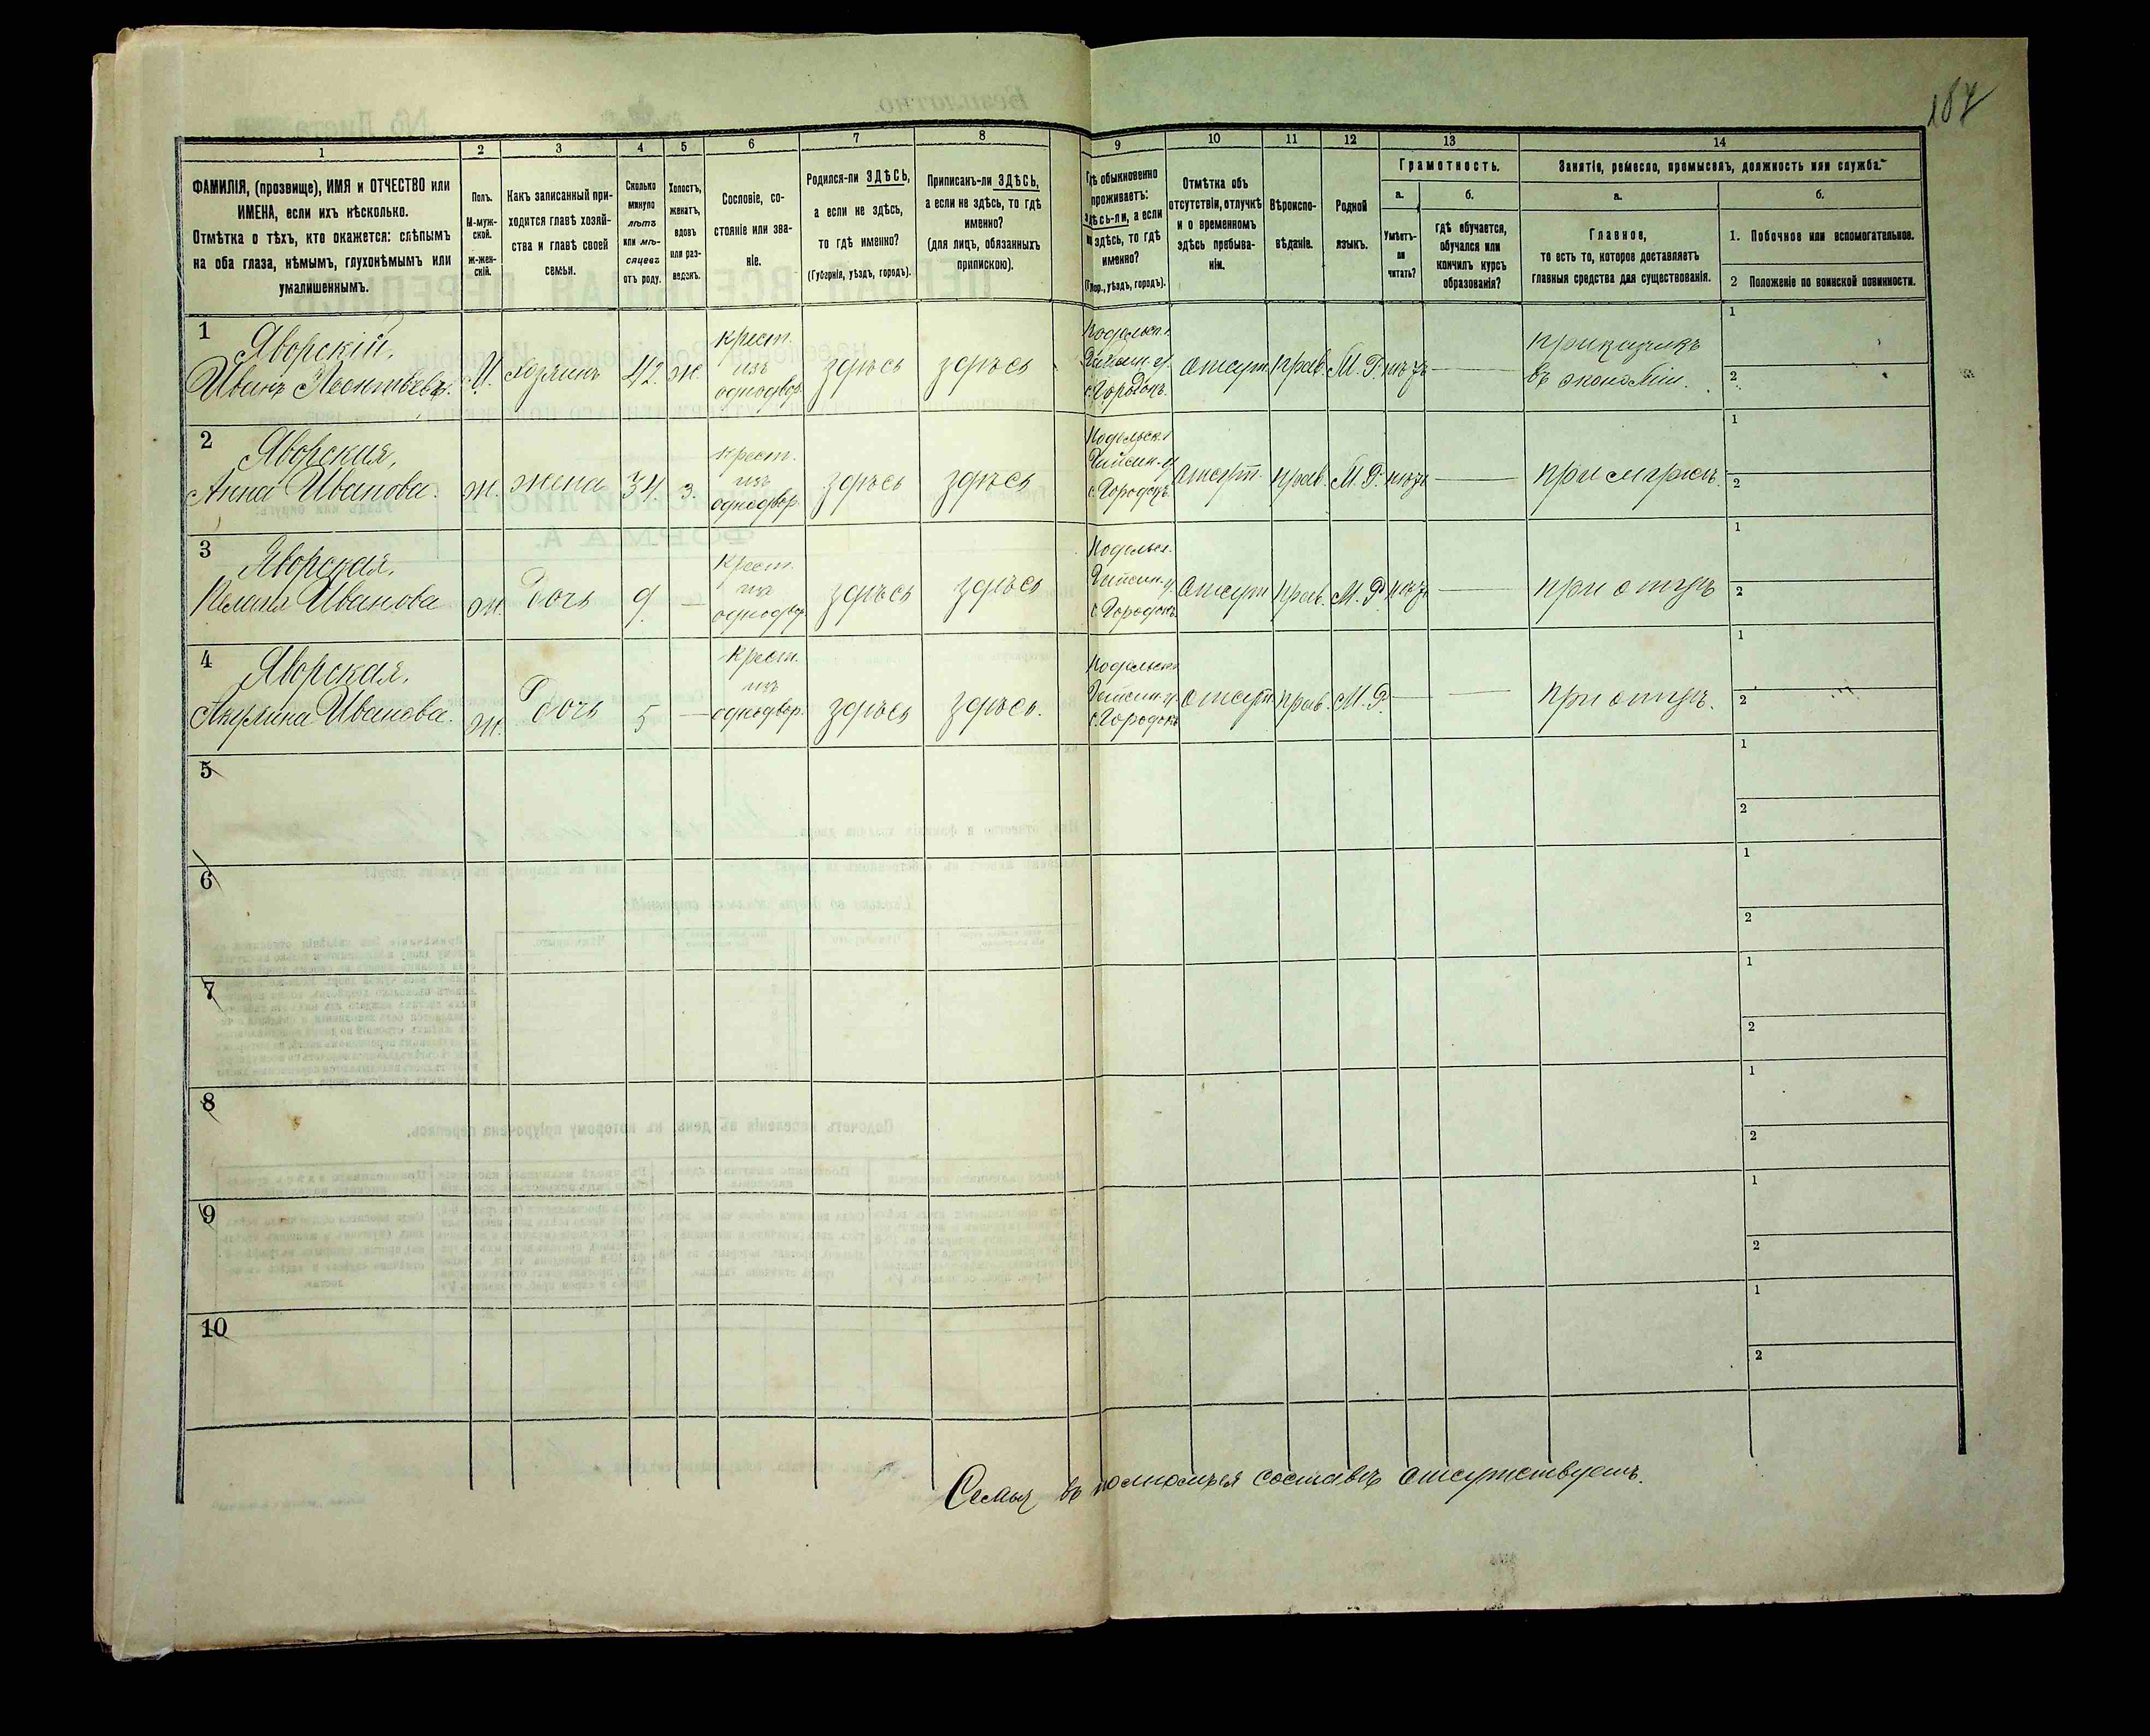 187
1 2 3 4 5 6 7 8 9 10 11 12 13 14
ФАМИЛІЯ, (прозвище), ИМЯ и ОТЧЕСТВО или
ИМЕНА, если ихъ нѣсколько.
Отмѣтка о тѣхъ, кто окажется: слѣпымъ
на оба глаза, нѣмымъ, глухонѣмымъ или
умалишеннымъ.
Полъ.
М-муж-
ской.
Ж-жен-
скій.
Какъ записанный при-
ходится главѣ хозяй-
ства и главѣ своей
семьи.
Сколько
минуло
лѣтъ
или мѣ-
сяцевъ
отъ роду.
Холостъ,
женатъ,
вдовъ
или раз-
веденъ.
Сословіе, со-
стояніе или зва-
ніе.
Родился-ли ЗДѢСЬ,
а если не здѣсь,
то гдѣ именно?
(Губернія, уѣздъ, городъ).
Приписанъ-ли ЗДѢСЬ,
а если не здѣсь, то гдѣ
именно?
(для лицъ, обязанныхъ
припискою).
обыкновенно
проживаетъ:
а если
здѣсь, то гдѣ
именно?
уѣздъ, городъ).
Отмѣтка объ
отсутствіи, отлучкѣ
и о временномъ
здѣсь пребыва-
ніи.
Вѣроиспо-
вѣданіе.
Родной
языкъ.
Грамотность.
а.
Умѣетъ-
ли
читать?
б.
гдѣ обучается,
обучался или
кончилъ курсъ
образованія?
Занятіе, ремесло, промыселъ, должность или служба.
а.
Главное,
то есть то, которое доставляетъ
главныя средства для существованія.
б.
1. Побочное или вспомогательное.
2 Положеніе по воинской повинности.
1 Яворскій,
Иванъ Леонтьевъ. М. хозяинъ 42 ж. крест. изъ однодвор. здѣсь здѣсь с. Городокъ. отсут. прав. М. Р. нѣтъ — приказчикъ въ экономіи. 1 2
2 Яворская,
Анна Иванова. ж. жена 34 з. крест. изъ однодвор. здѣсь здѣсь с. Городокъ. отсут. прав. М. Р. нѣтъ — при мужѣ. 1 2
3 Яворская,
Иванова ж. дочь 9 — крест. изъ однодвор. здѣсь здѣсь с. Городокъ. отсут. прав. М. Р. нѣтъ — при отцѣ 1 2
4 Яворская,
Акулина Иванова. ж. дочь 5 — крест. изъ однодвор. здѣсь здѣсь. с. Городокъ отсут. прав. М. Р. — — при отцѣ. 1 2
5 1 2
6 1 2
7 1 2
8 1 2
9 1 2
10 1 2
Семья въ составѣ отсутствуетъ.